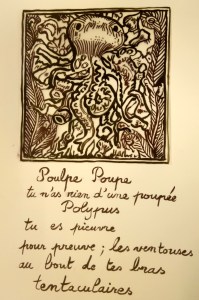 Poulpe Poupe
tu n'as rien d'une poupée
Polypus
tu es pieuvre
pour preuve ; les ventouses
au bout de tes bras
tentaculaires